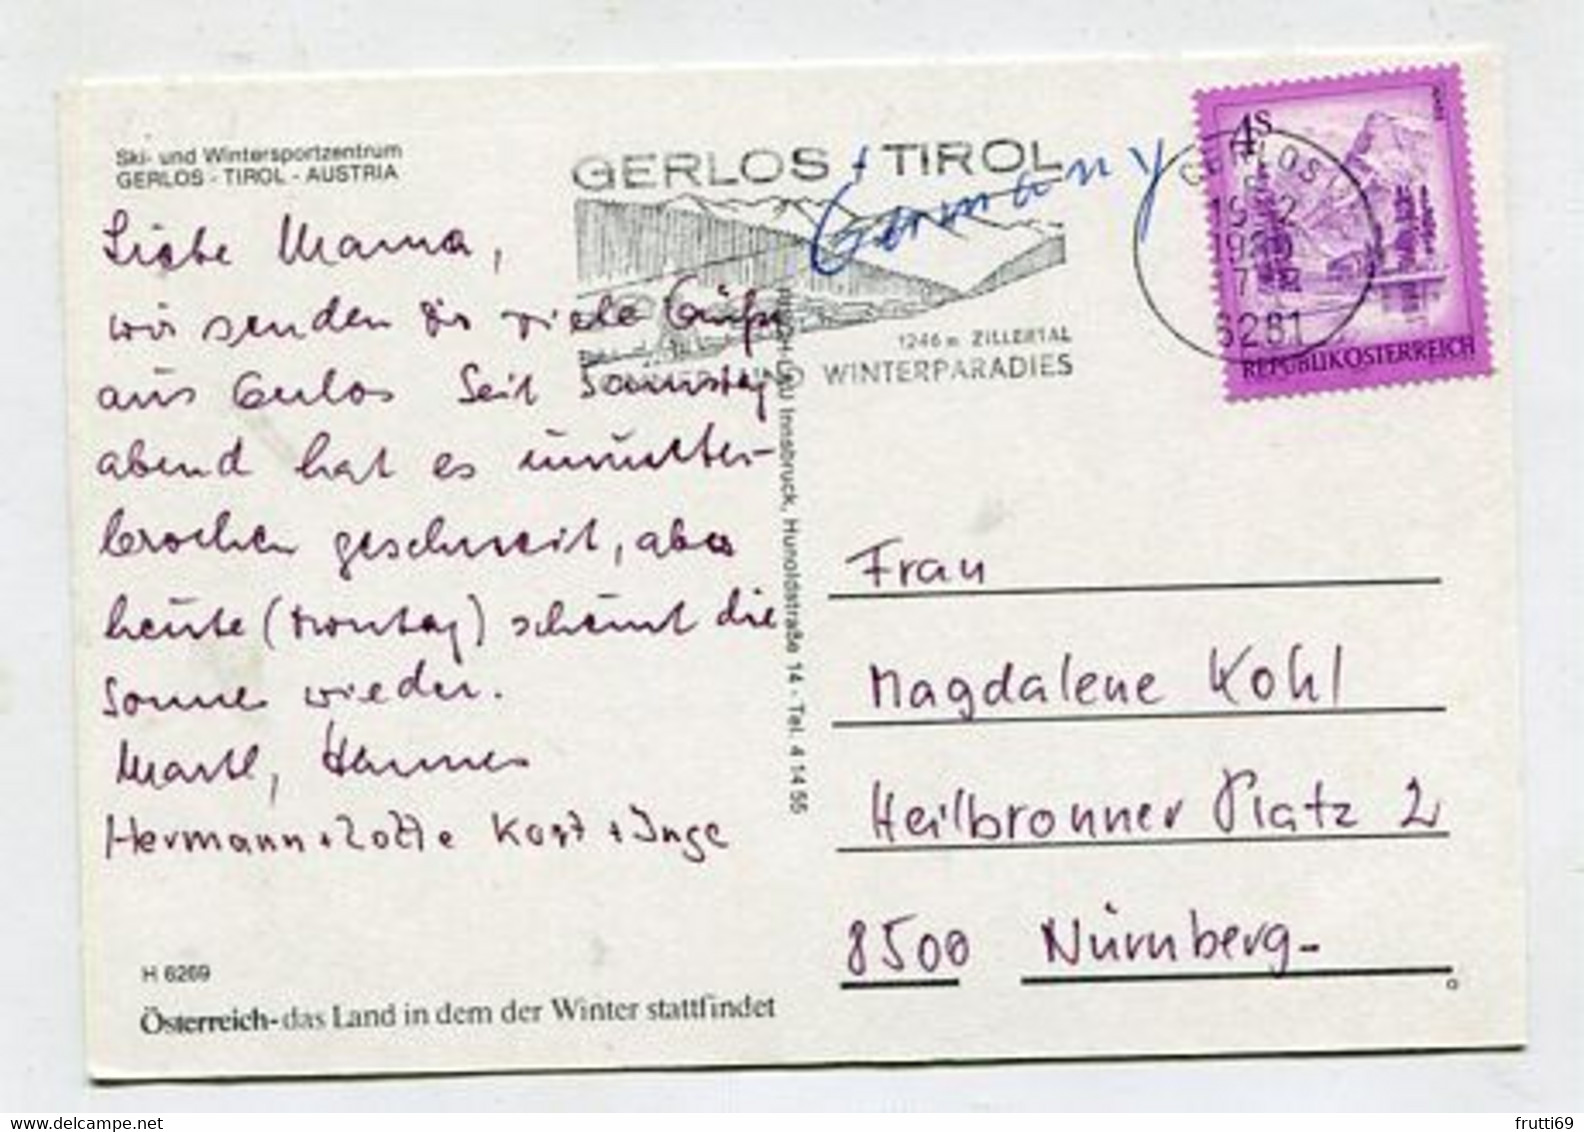 Ski- und Wintersportzentrum
GERLOS - TIROL - AUSTRIA
Liebe Mama,
wir senden Dir viele Grüße
aus Gerlos Seit Samstag
abend hat es ununter-
brochen geschneit, aber
heute (Montag) scheint die
Sonne wieder.
Hannes
Hermann + Lotte Kurt + Inge
H 6269
Österreich - das Land in dem der Winter stattfindet
GERLOS + TIROL
Germany
1246 m ZILLERTAL
UND WINTERPARADIES
Innsbruck, Hunoldstraße 14 - Tel. 4 14 55
GERLOS
6281
4S
REPUBLIK ÖSTERREICH
Frau
Magdalene Kohl
Heilbronner Platz 2
8500 Nürnberg-
frutti69
delcampe.net